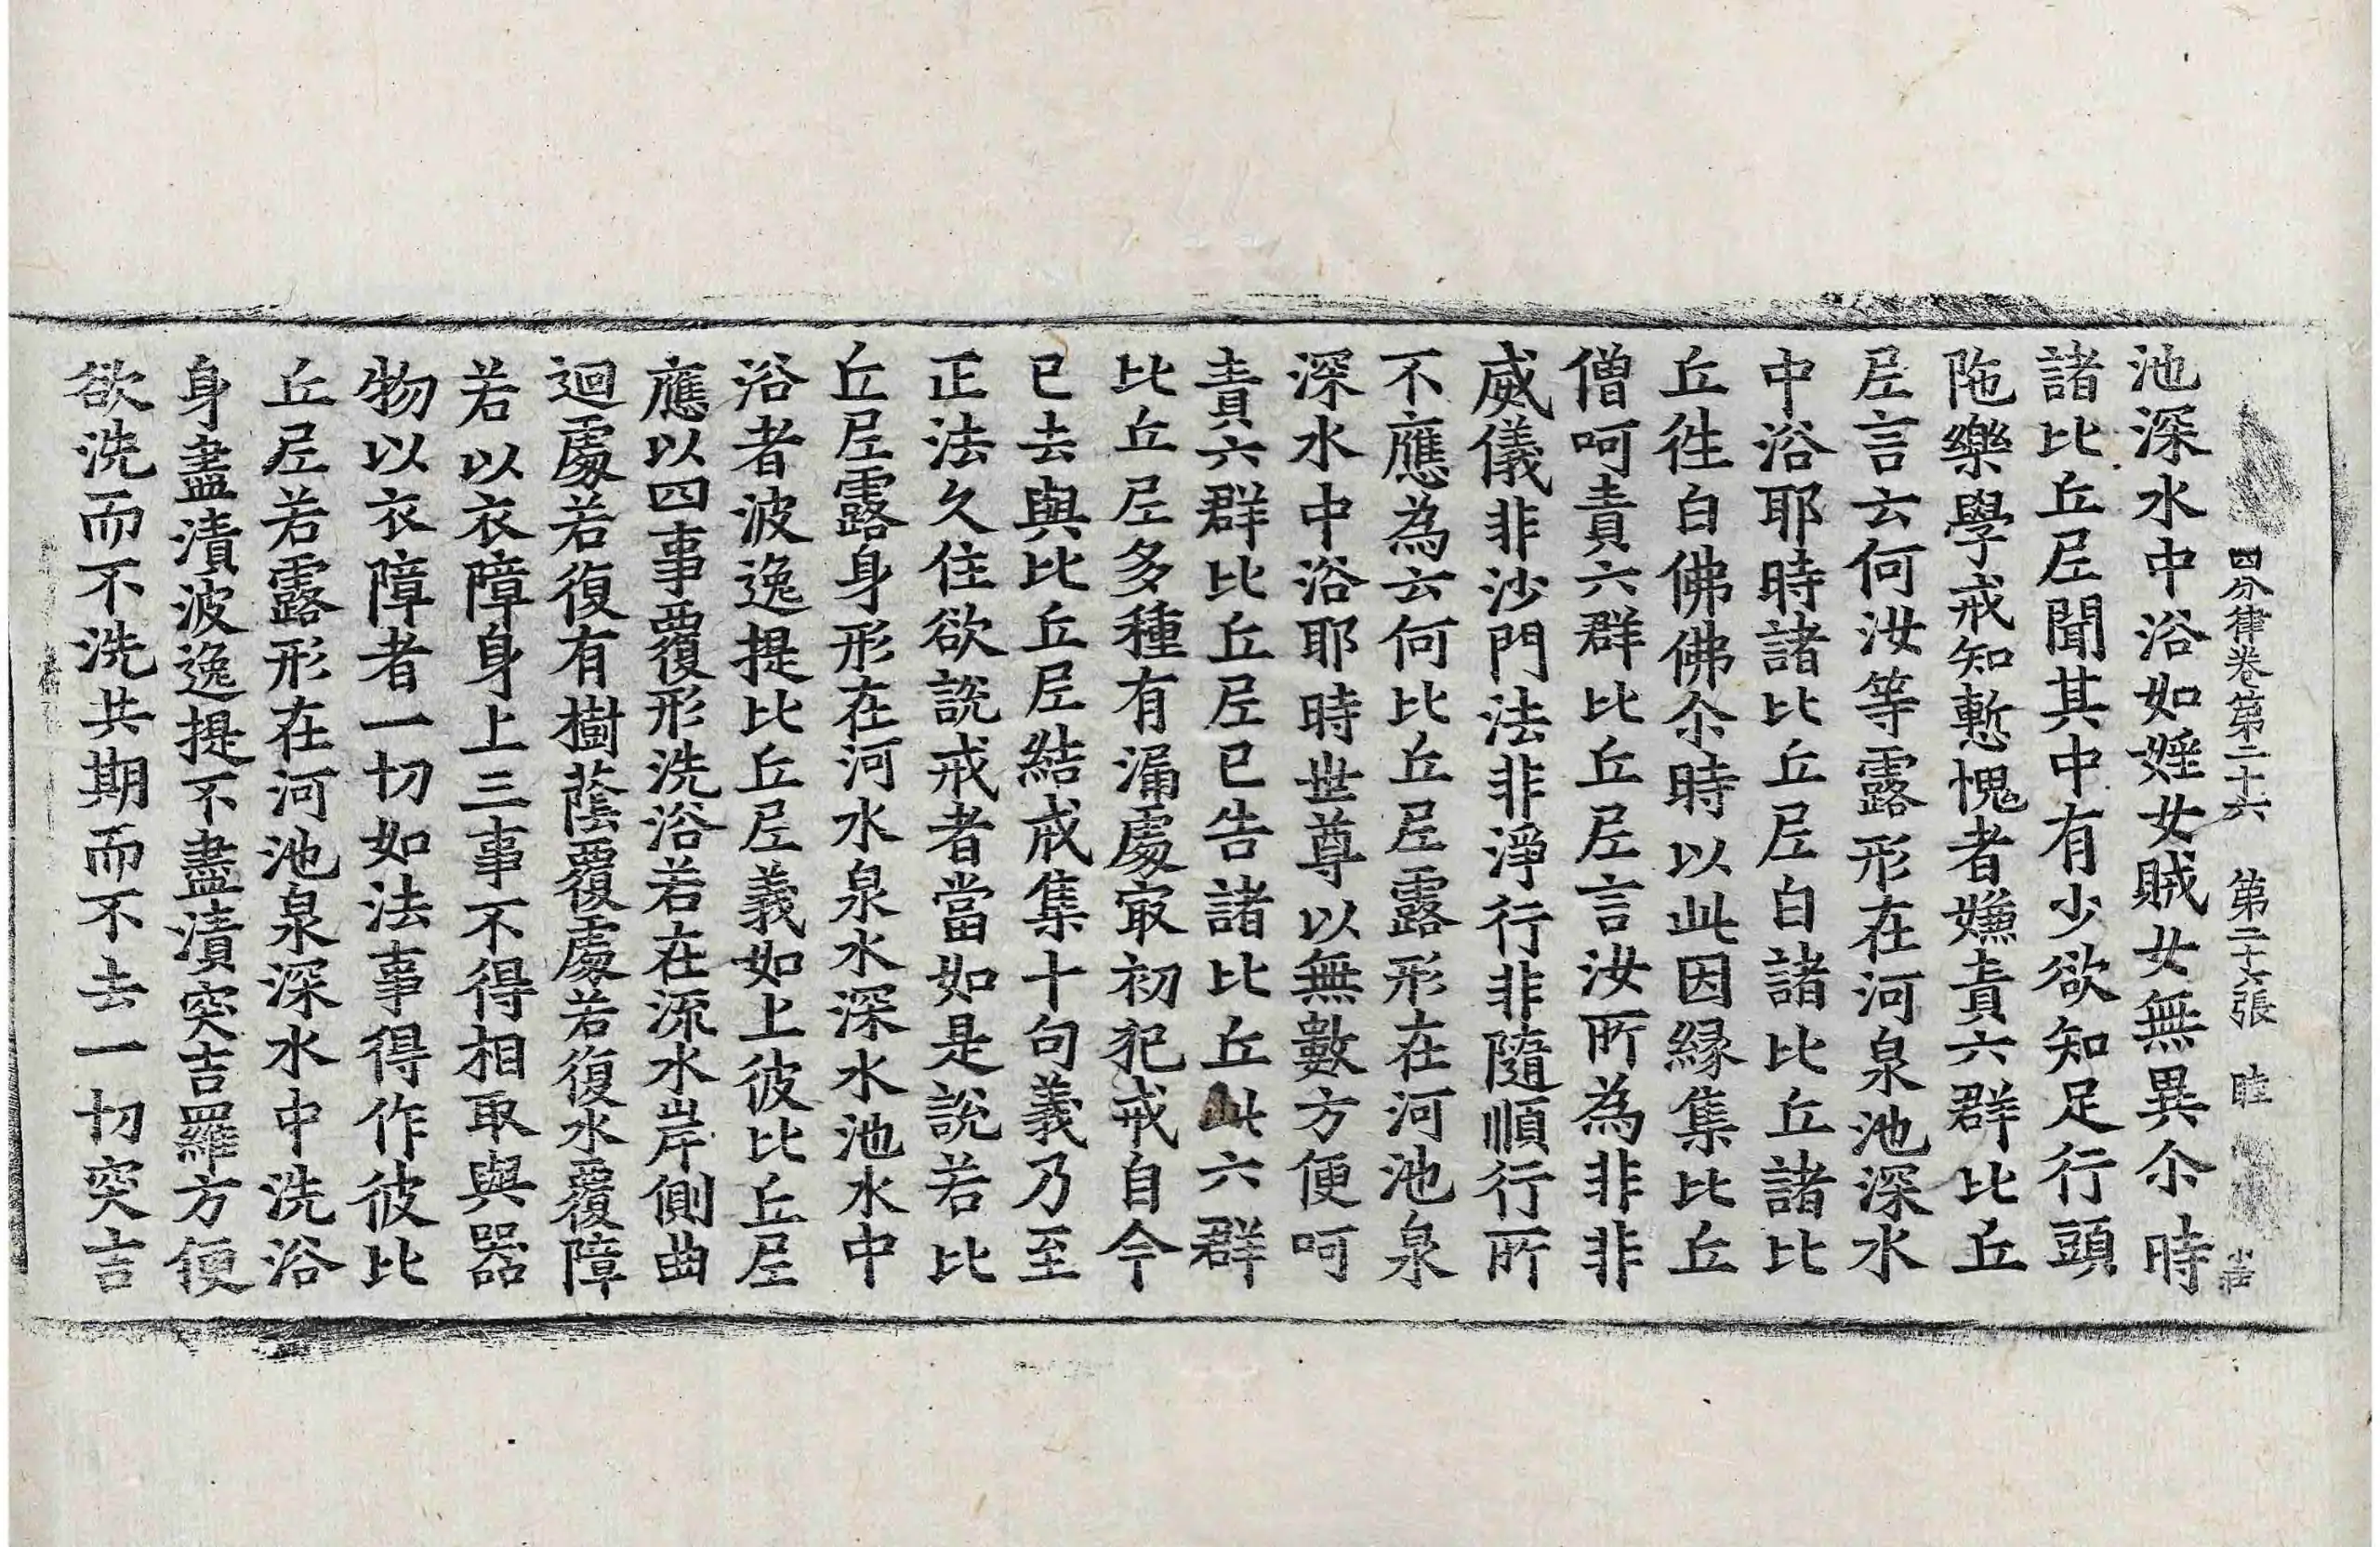 四分律卷第二十六 第二十六張 睦
池深水中浴如婬女賊女無異尒時
諸比丘尼聞其中有少欲知足行頭
陁樂學戒知慙愧者嫌責六群比丘
尼言云何汝等露形在河泉池深水
中浴耶時諸比丘尼白諸比丘諸比
丘往白佛佛尒時以此因緣集比丘
僧呵責六群比丘尼言汝所為非非
威儀非沙門法非淨行非隨順行所
不應為云何比丘尼露形在河池泉
深水中浴耶時世尊以無數方便呵
責六群比丘尼已告諸比丘此六群
比丘尼多種有漏處㝡初犯戒自今
已去與比丘尼結戒集十句義乃至
正法久住欲說戒者當如是說若比
丘尼露身形在河水泉水深水池水中
浴者波逸提比丘尼義如上彼比丘尼
應以四事覆形洗浴若在流水岸側曲
迴處若復有樹蔭覆處若復水覆障
若以衣障身上三事不得相取與器
物以衣障者一切如法事得作彼比
丘尼若露形在河池泉深水中洗浴
身盡漬波逸提不盡漬突吉羅方便
欲洗而不洗共期而不去一切突言